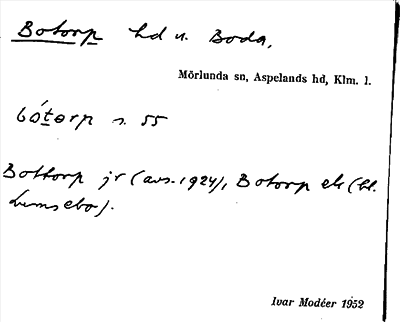 Botorp hd u. Boda,
Mörlunda sn, Aspelands hd, Klm. l.
bótɵrp s. 55
Bottorp jr (avs. 1924), Botorp ek (bl.
Lumsebo).
Ivar Modéer 1952